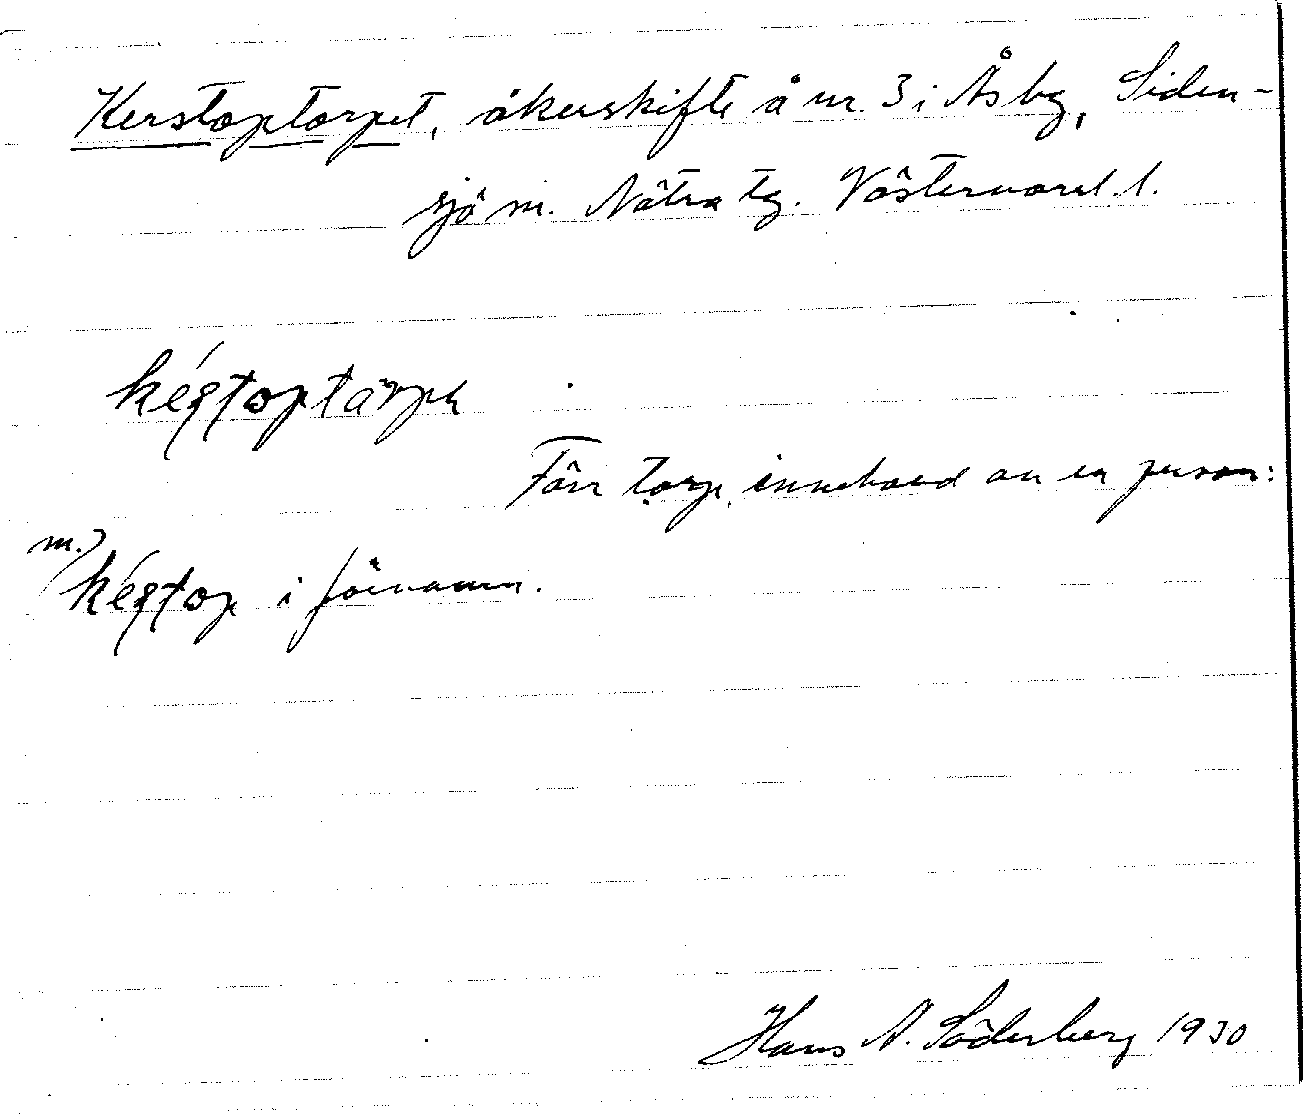 Kerstoptorpet, åkerskifte å nr 3 i Åsby, Siden-
sjö sn. Nätra tg. Västernorrl. l.
Förr torp, innehavd av en person:
m.
i förnamn.
Hans N. Söderberg 1930